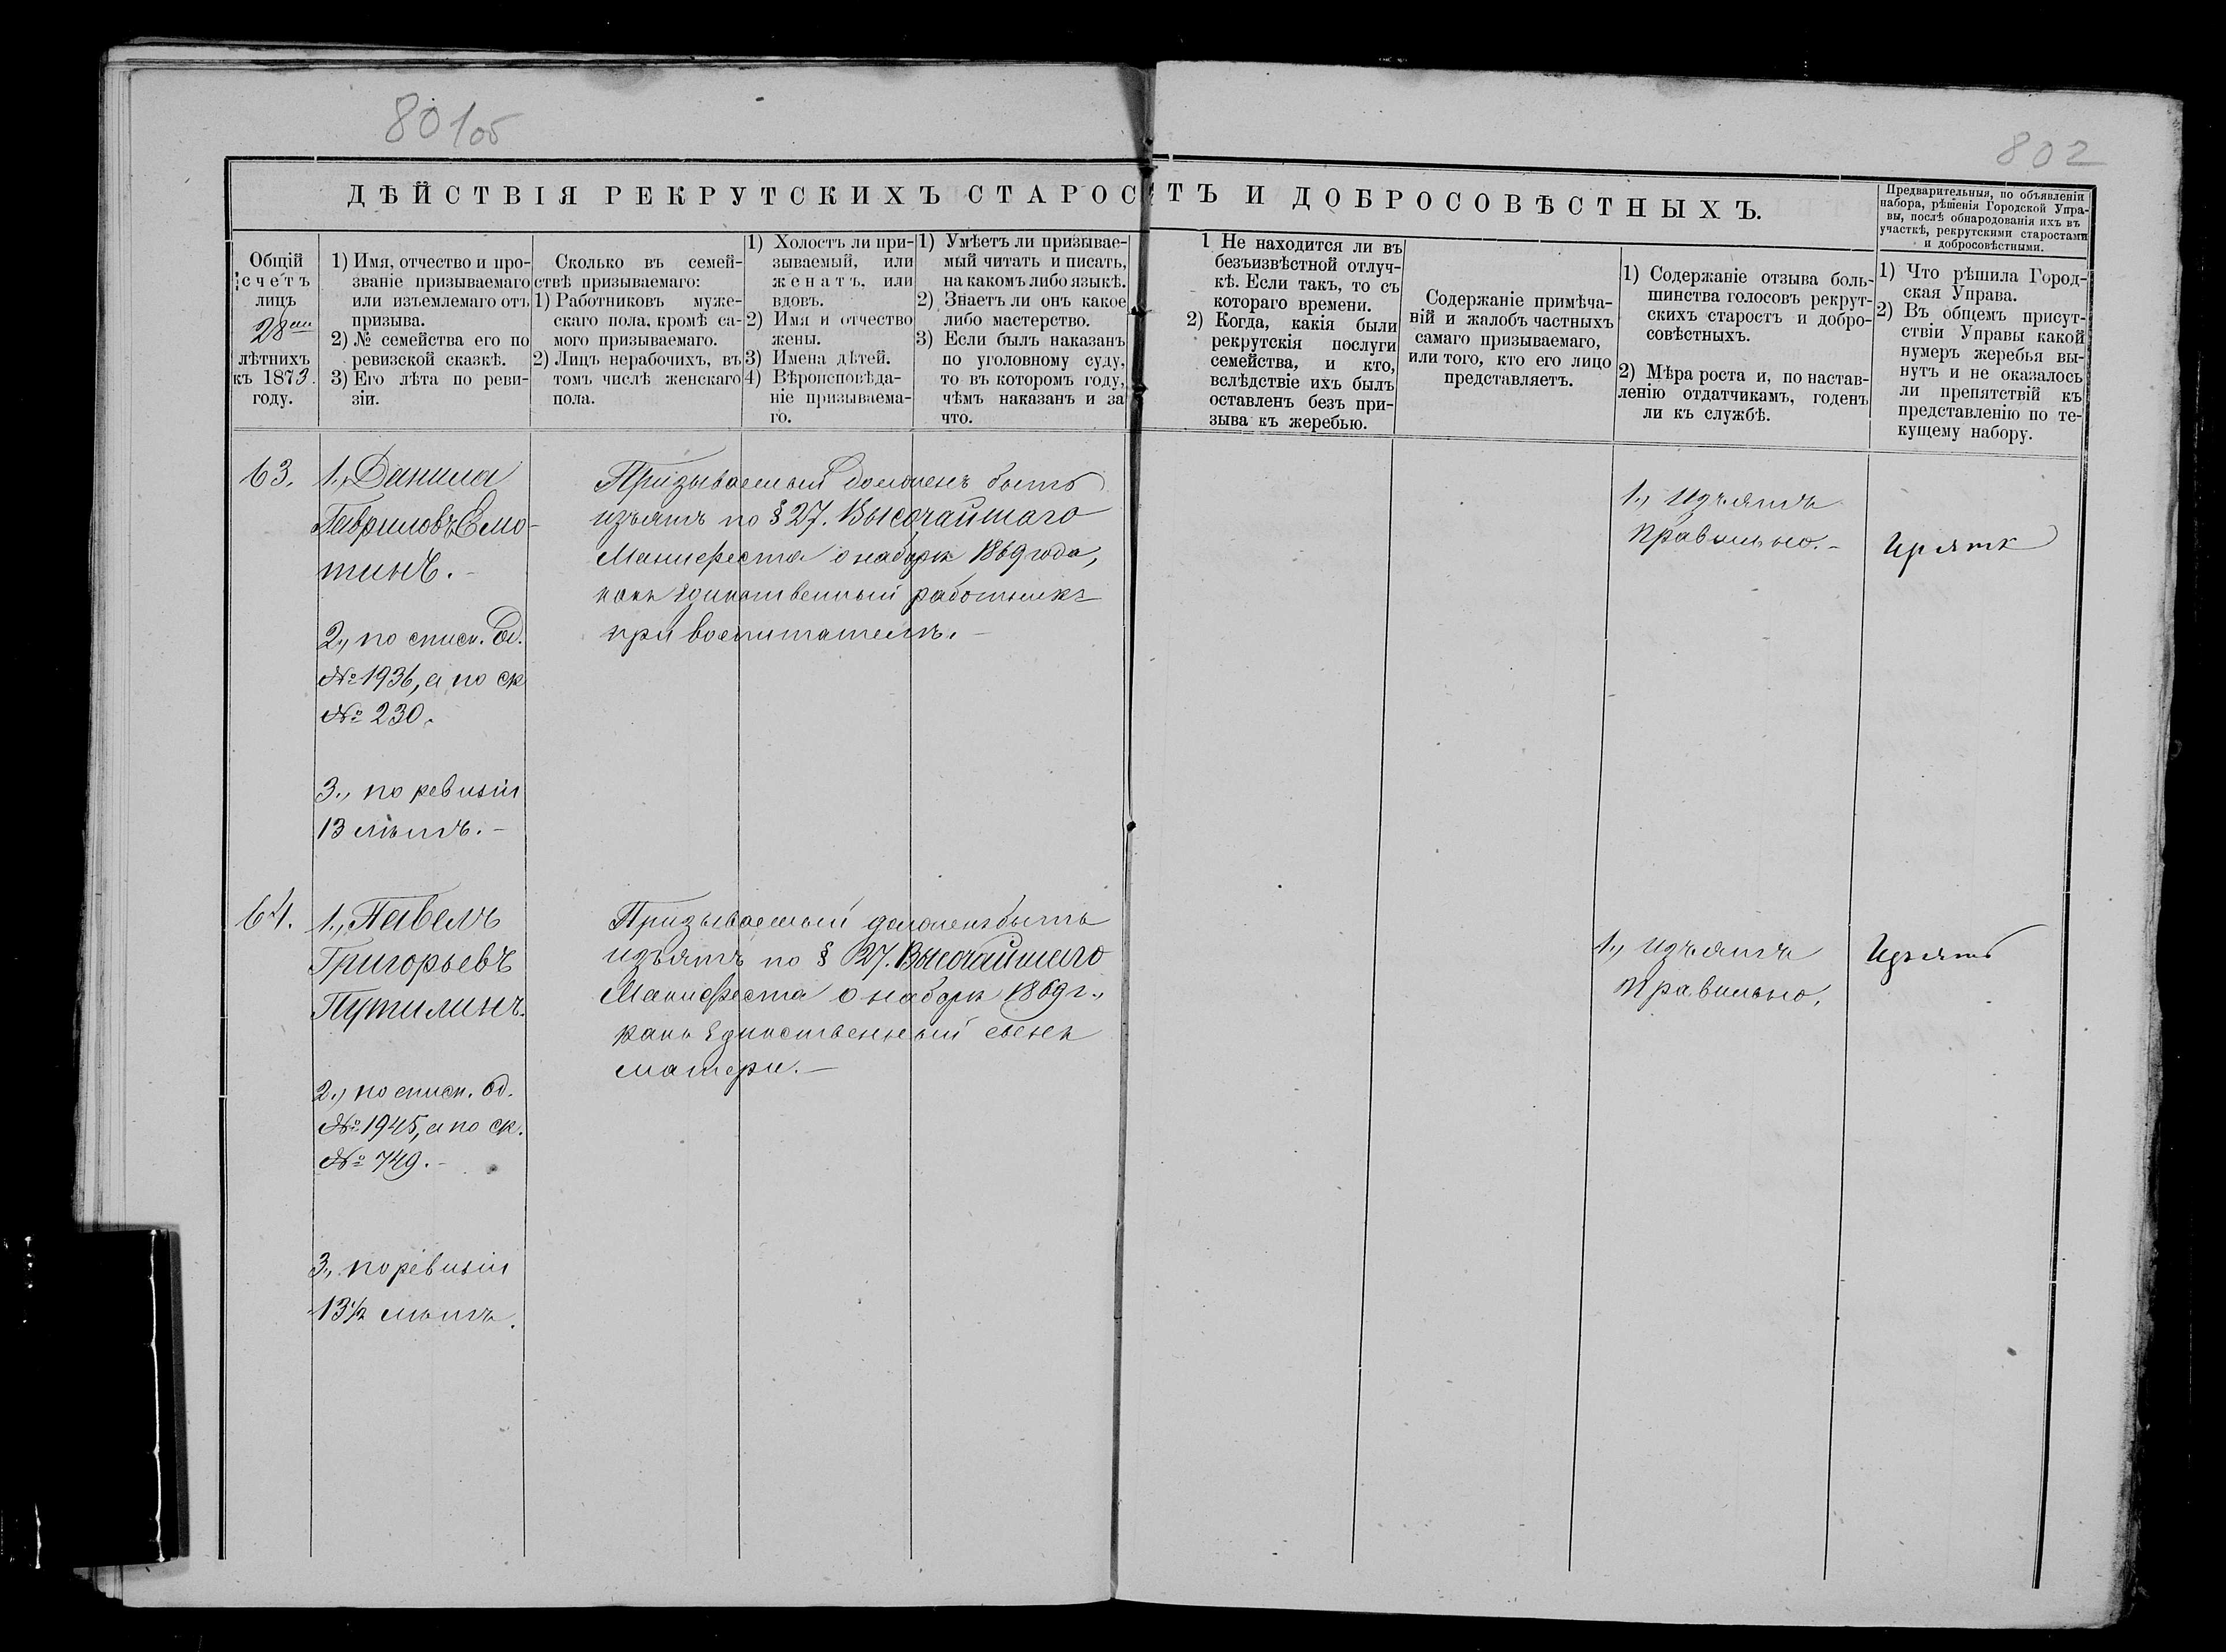 801об
802
ДѢЙСТВІЯ РЕКРУТСКИХЪ СТАРОСТЪ И ДОБРОСОВѢСТНЫХЪ.
Предварительныя, по объявленіи
набора, рѣшенія Городской Упра-
вы, послѣ обнародованія ихъ въ
участкѣ, рекрутскими старостами
и добросовѣстными.
Общій
счетъ
лицъ
28ми
лѣтнихъ
къ 1873.
году.
1) Имя, отчество и про-
званіе призываемаго
или изъемлемаго отъ
призыва.
2) № семейства его по
ревизской сказкѣ.
3) Его лѣта по реви-
зіи.
Сколько въ семей-
ствѣ призываемаго:
1) Работниковъ муже-
скаго пола, кромѣ са-
мого призываемаго.
2) Лицъ нерабочихъ, въ
томъ числѣ женскаго
пола.
1) Холостъ ли при-
зываемый, или
женатъ, или
вдовъ.
2) Имя и отчество
жены.
3) Имена дѣтей.
4) Вѣроисповѣда-
ніе призываема-
го.
1) Умѣетъ ли призывае-
мый читать и писать,
на какомъ либо языкѣ.
2) Знаетъ ли онъ какое
либо мастерство.
3) Если былъ наказанъ
по уголовному суду,
то въ которомъ году,
чѣмъ наказанъ и за
что.
1 Не находится ли въ
безъизвѣстной отлуч-
кѣ. Если такъ, то съ
котораго времени.
2) Когда, какія были
рекрутскія послуги
семейства, и кто,
вслѣдствіе ихъ былъ
оставленъ безъ при-
зыва къ жеребью.
Содержаніе примѣча-
ній и жалобъ частныхъ
самаго призываемаго,
или того, кто его лицо
представляетъ.
1) Содержаніе отзыва боль-
шинства голосовъ рекрут-
скихъ старостъ и добро-
совѣстныхъ.
2) Мѣра роста и, по настав-
ленію отдатчикамъ, годенъ
ли къ службѣ.
1) Что рѣшила Город-
ская Управа.
2) Въ общемъ присут-
ствіи Управы какой
нумеръ жеребья вы-
нутъ и не оказалось
ли препятствій къ
представленію по те-
кущему набору.
63.
1., Данила
Гавриловъ Смо-
тинъ. -
2., по списк. Од.
№ 1936, а по ск
№ 230.
3., по ревизіи
13 лѣтъ. -
Призываемый долженъ быть
изъятъ по § 27. Высочайшаго
Манифеста о наборѣ 1869 года,
какъ единственный работникъ
при воспитателѣ. -
1., Изъятъ
правильно. -
Изъять
64.
1., Павелъ
Григорьевъ
Путилинъ.
2., по списк. Од.
№ 1945, а по ск.
№ 749. -
3., по ревизіи
13½ лѣтъ.
Призываемый долженъ быть
изъятъ по § 27. Высочайшаго
Манифеста о наборѣ 1869 г.,
какъ единственный сынъ
матери. -
1., Изъятъ
правильно.
Изъять